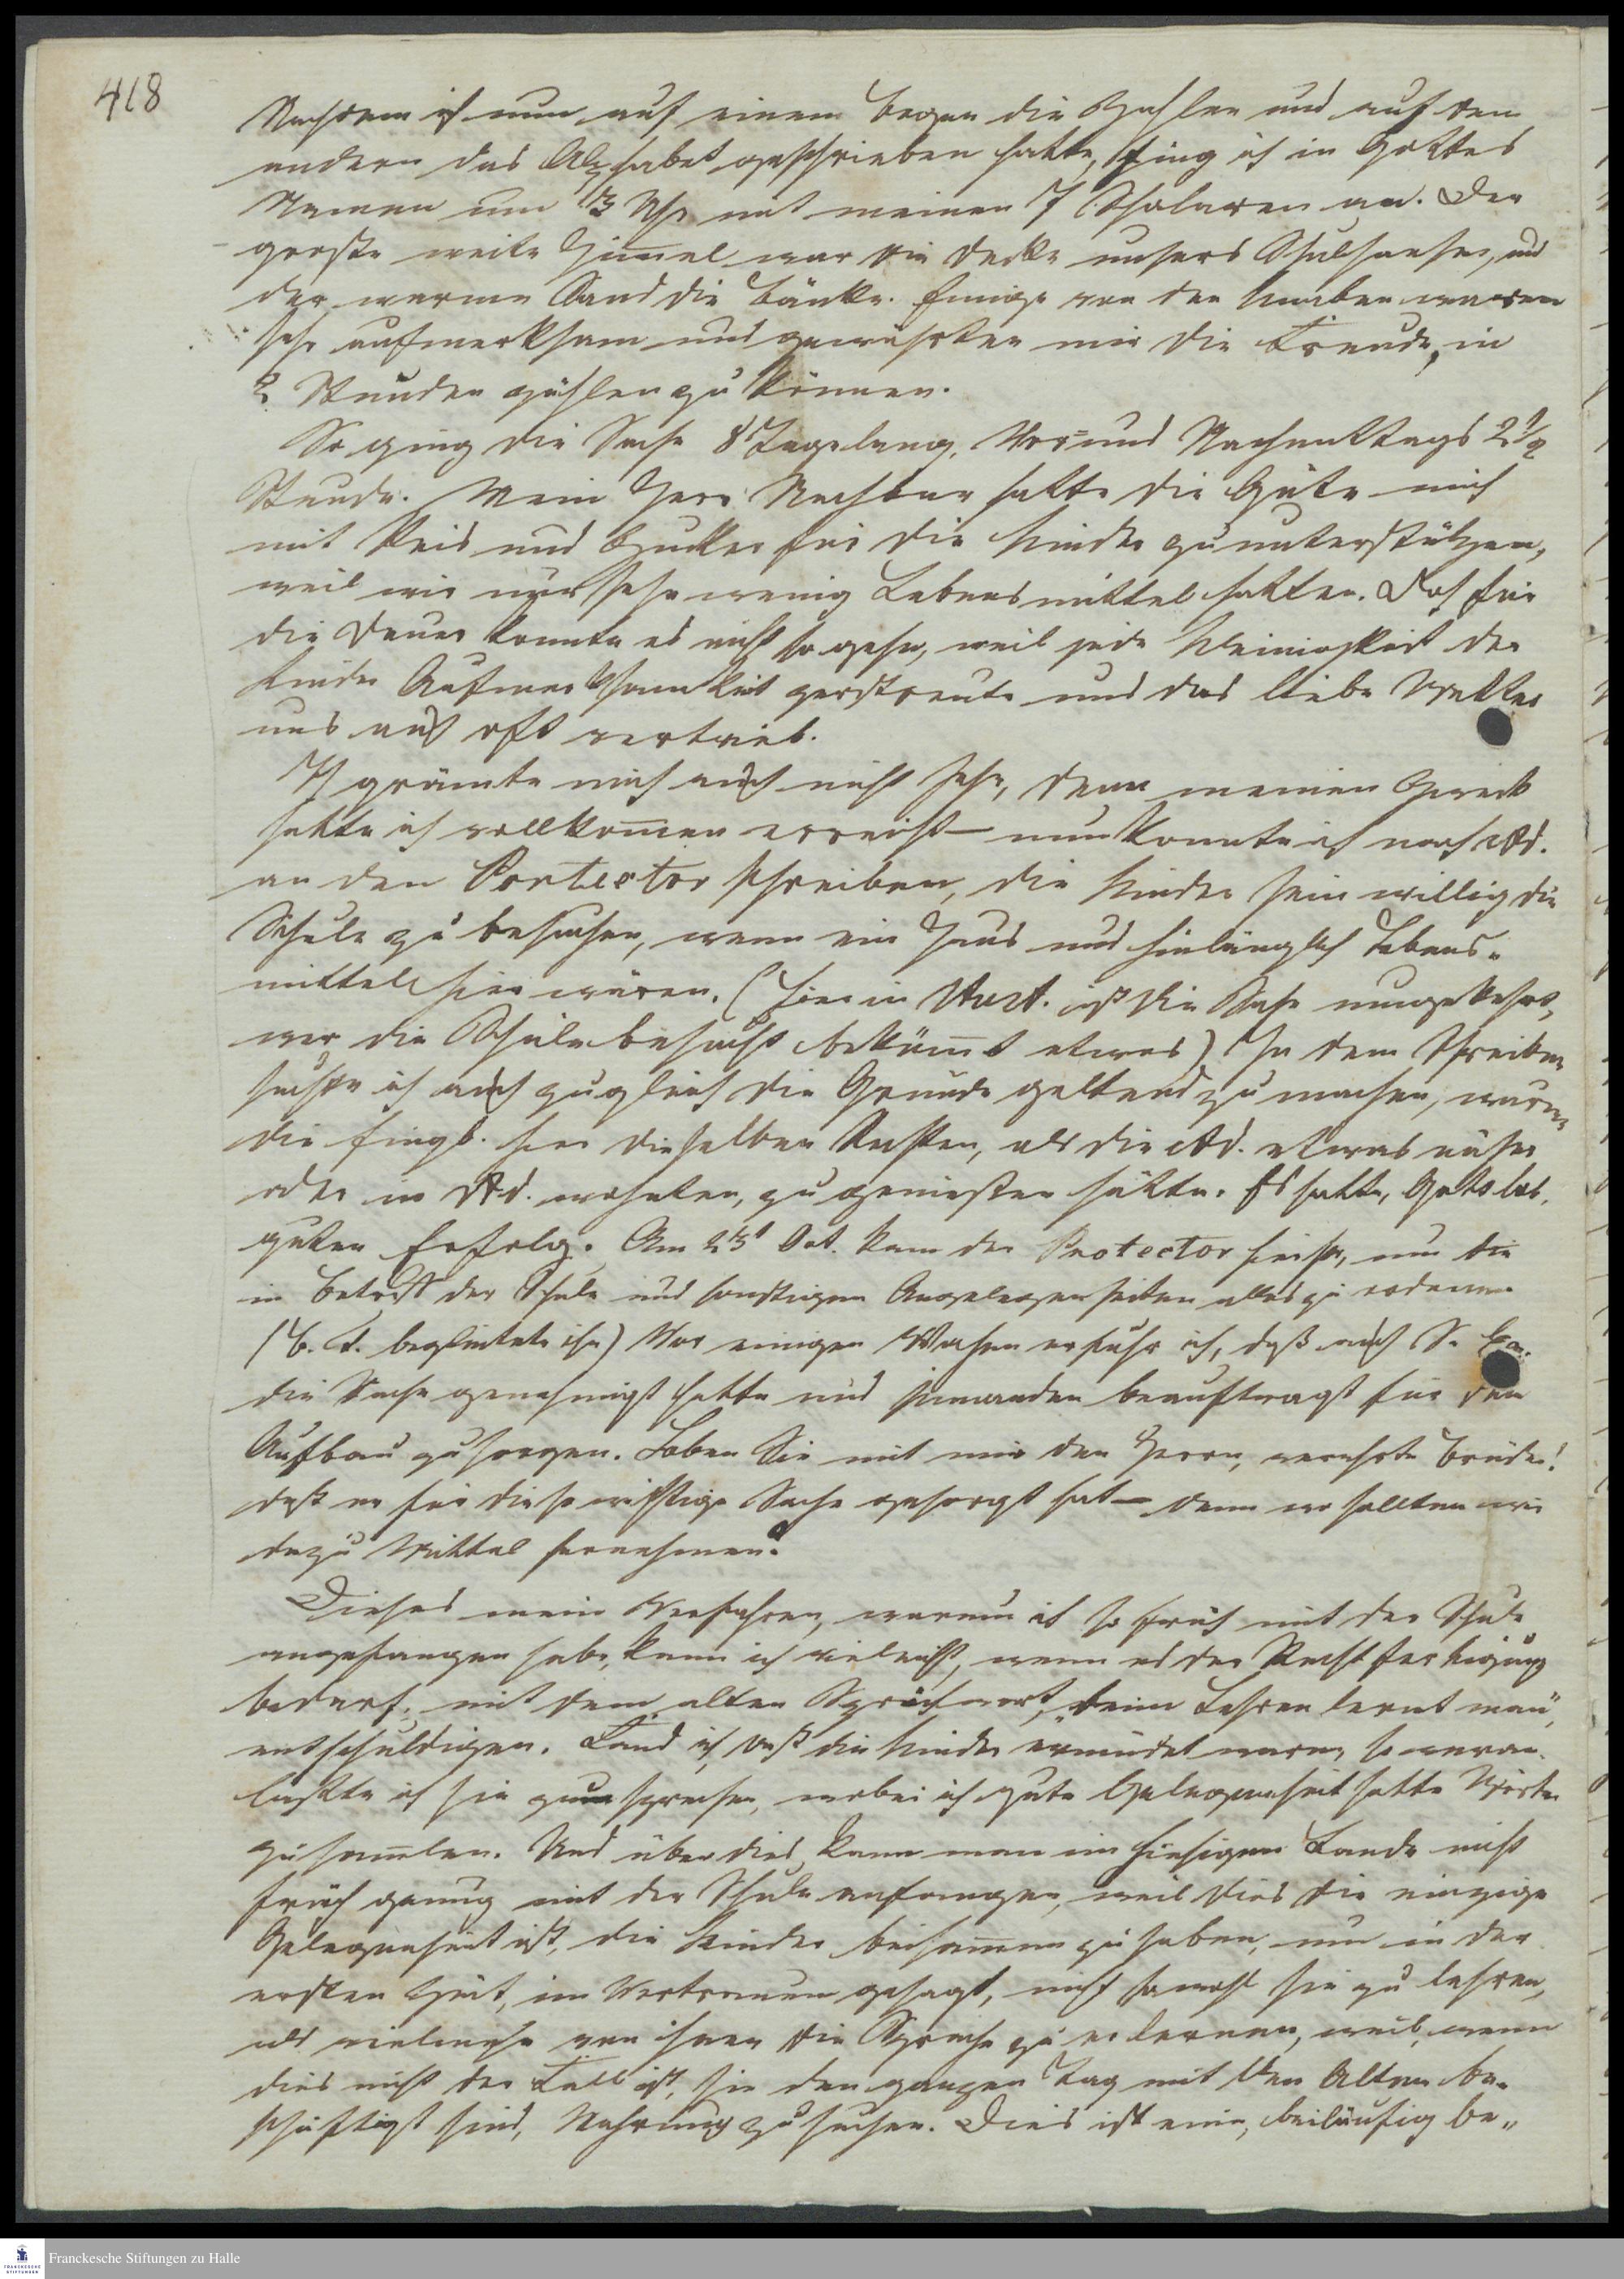 418
Nachdem ich nun auf einem Bogen die Zahlen und auf dem
andern das Alphabet geschrieben hatte, fing ich in Gottes
Namen um 3 Uhr mit meinen 7 Scholaren an. Der
große weite Him̄el war die Decke unsers Schulhauses, und
der warme Sand die Bänke. Einige von den Knaben waren
sehr aufmerksam und gewährten mir die Freude, in
2 Stunden zählen zu können.
So ging die Sache 8 Tagelang, Vor- und Nachmittags 2 1/2
Stunde. Mein Herr Nachbar hatte die Güte mich
mit Reis und Zucker für die Kinder zu unterstützen,
weil wir nur sehr wenig Lebensmittel hatten. Doch für
die Dauer konnte es nicht so gehen, weil jede Kleinigkeit der
Kinder Aufmerksamkeit zerstreute und das liebe Wetter
uns auch oft vertrieb.
Ich grämte mich auch nicht sehr, denn meinen Zweck
hatte ich vollkom̄en erreicht – nun konnte ich nach Ad.
an den Protector schreiben, die Kinder sein willig die
Schule zu besuchen, wenn ein Haus und hinlänglich Lebens-
mittel hier wären. (Hier in Aust. ist die Sache umgekehrt,
wer die Schule besucht beköm̄t etwas) In dem Schreiben
suchte ich auch zugleich die Gründe geltend zu machen, warum
die Eingb. hier dieselben Rechten, als die Ad. etwas näher
oder in Ad. wohnten, zu genießen hätte. Es hatte, Gott lob,
guten Erfolg. Am 23t Oct. kam der Protector hierher, um die
in Betreff der Schule und sonstigen Angelegenheiten alles zu ordenen
(B. T. begleitete ihn) Vor einigen Wochen erfuhr ich, daß auch Se Ex.
die Sache genehmigt hatte und jemanden beauftragt für den
Aufbau zu sorgen. Loben Sie mit mir den Herrn, verehrte Brüder!
daß er für diese wichtige Sache gesorgt hat – denn wo sollten wir
dazu Mittel hernehmen?
Dieses mein Verfahren, warum ich so früh mit der Schule
angefangen habe, kann ich vielleicht, wenn es der Rechtfertigung
bedarf, mit dem alten Sprüchwort, „beim Lehren lernt man",
entschuldigen. Fand ich, daß die Kinder ermüdet waren, so veran-
laßte ich sie zum sprechen, wobei ich gute Gelegenheit hatte Wörter
zu sam̄len. Und über dies kann man im hiesigen Lande nicht
früh genug mit der Schule anfangen, weil dies die einzige
Gelegenheit ist, die Kinder beisam̄en zu haben, um in der
ersten Zeit, im Vertrauen gesagt, nicht sowohl sie zu lehren,
als vielmehr von ihnen die Sprache zu erlernen, weil, wenn
dies nicht der Fall ist, sie den ganzen Tag mit den Alten be-
schäftigt sind, Nahrung zu suchen. Dies ist eine, beiläufig be-
FRANCKESCHE STIFTUNGEN
Franckesche Stiftungen zu Halle